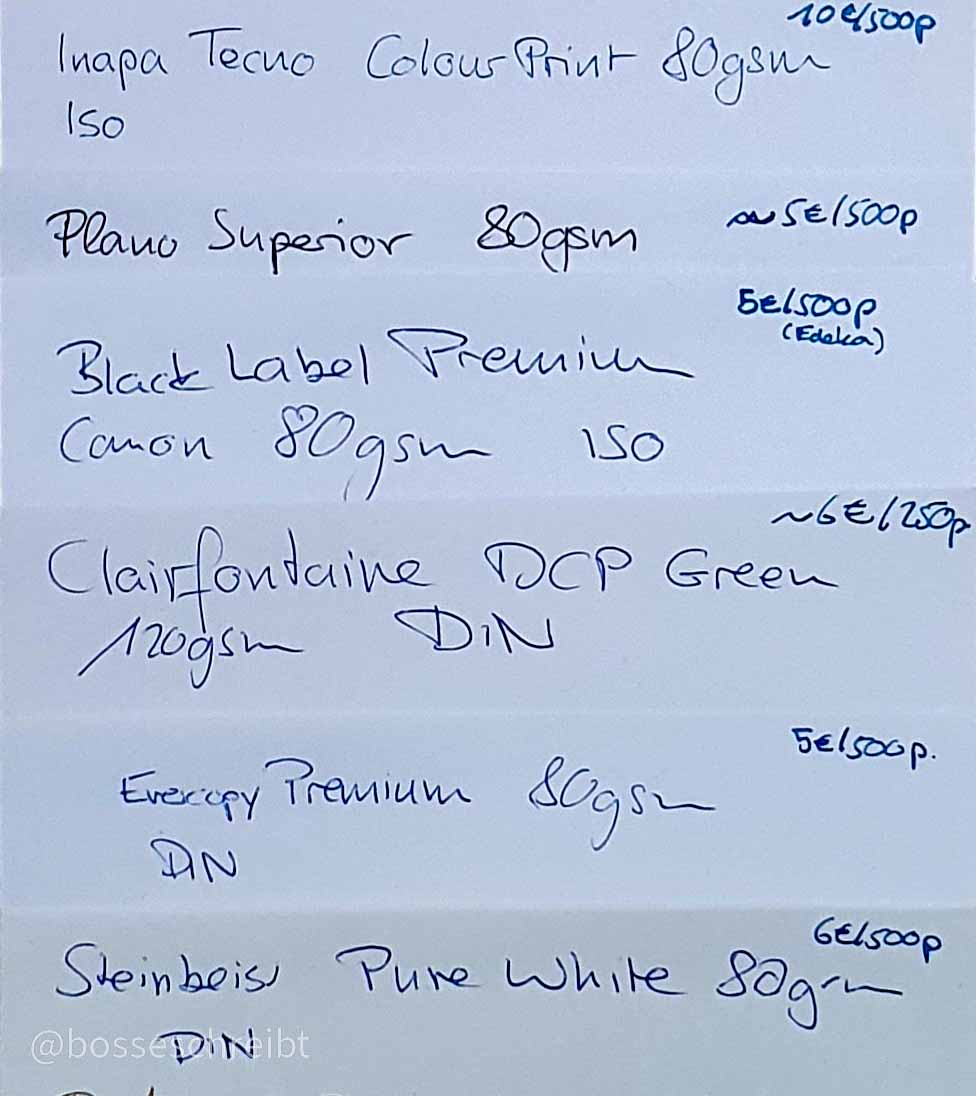 10€/500p
Inapa Tecno Colour Print 80gsm
ISO
Plano Superior 80gsm ~5€/500p
5€/500p
(Edeka)
Black Label Premium
Canon 80gsm ISO
~6€/250p
Clairfontaine DCP Green
120gsm DIN
5€/500p.
Evercopy Premium 80gsm
DIN
6€/500p
Steinbeis Pure White 80gsm
DIN
@bosseschreibt